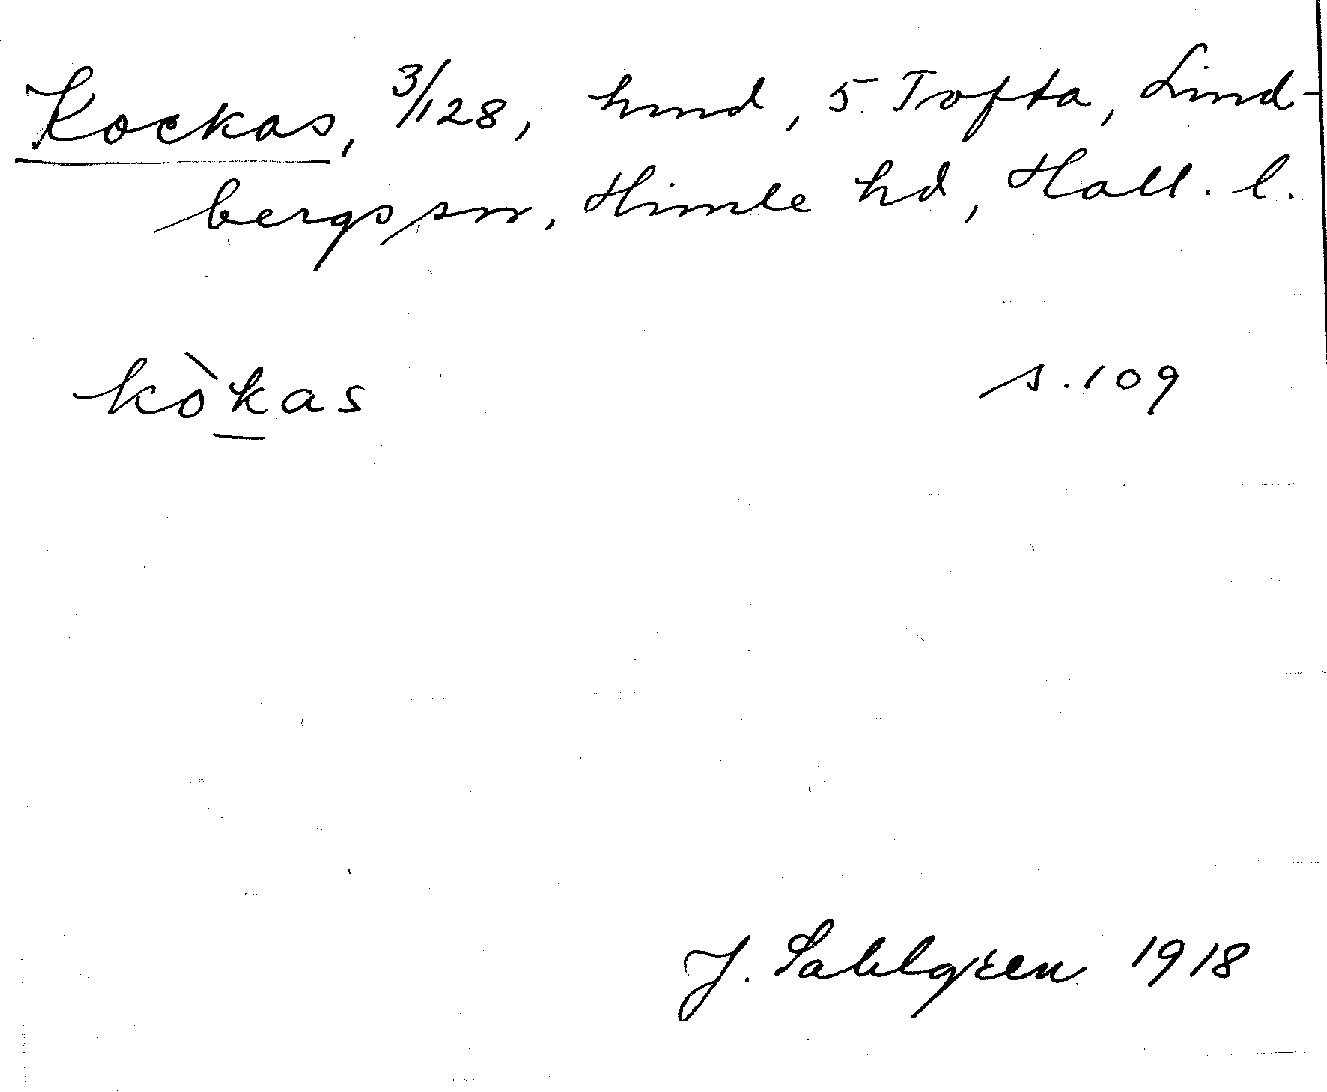 Kockas, 3/128, hmd, 5 Tofta, Lind-
bergs sn, Himle hd, Hall. l.
kòkas s. 109
J. Sahlgren 1918